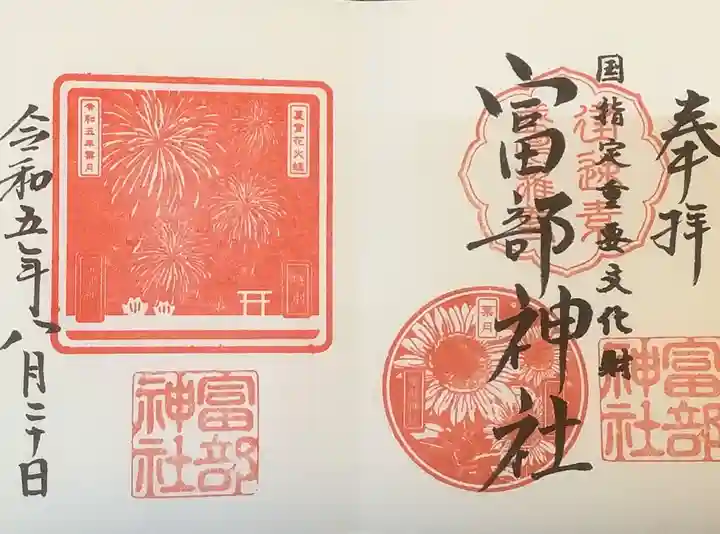 奉拝
国指定重要文化財
富部神社
葉月
富部神社
夏宵花火
令和五年葉月
富部神社
令和五年八月二十日